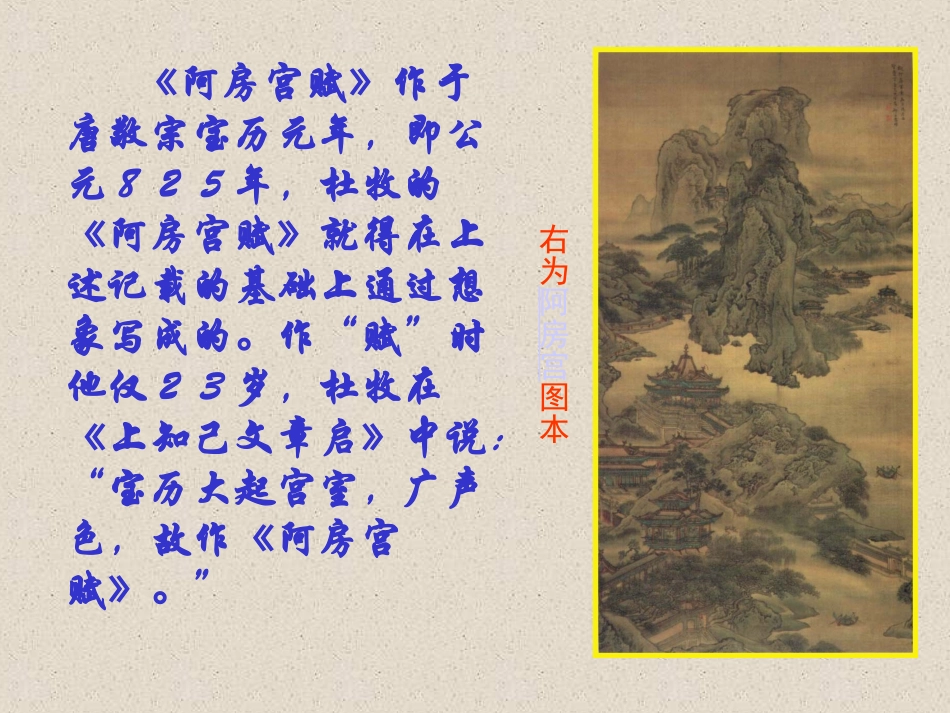 《阿房宫赋》作于
唐敬宗宝历元年，即公
元８２５年，杜牧的
《阿房宫赋》就得在上
述记载的基础上通过想
象写成的。作“赋”时
他仅２３岁，杜牧在
《上知己文章启》中说：
“宝历大起宫室，广声
色，故作《阿房宫
赋》。”
右为阿房宫图本